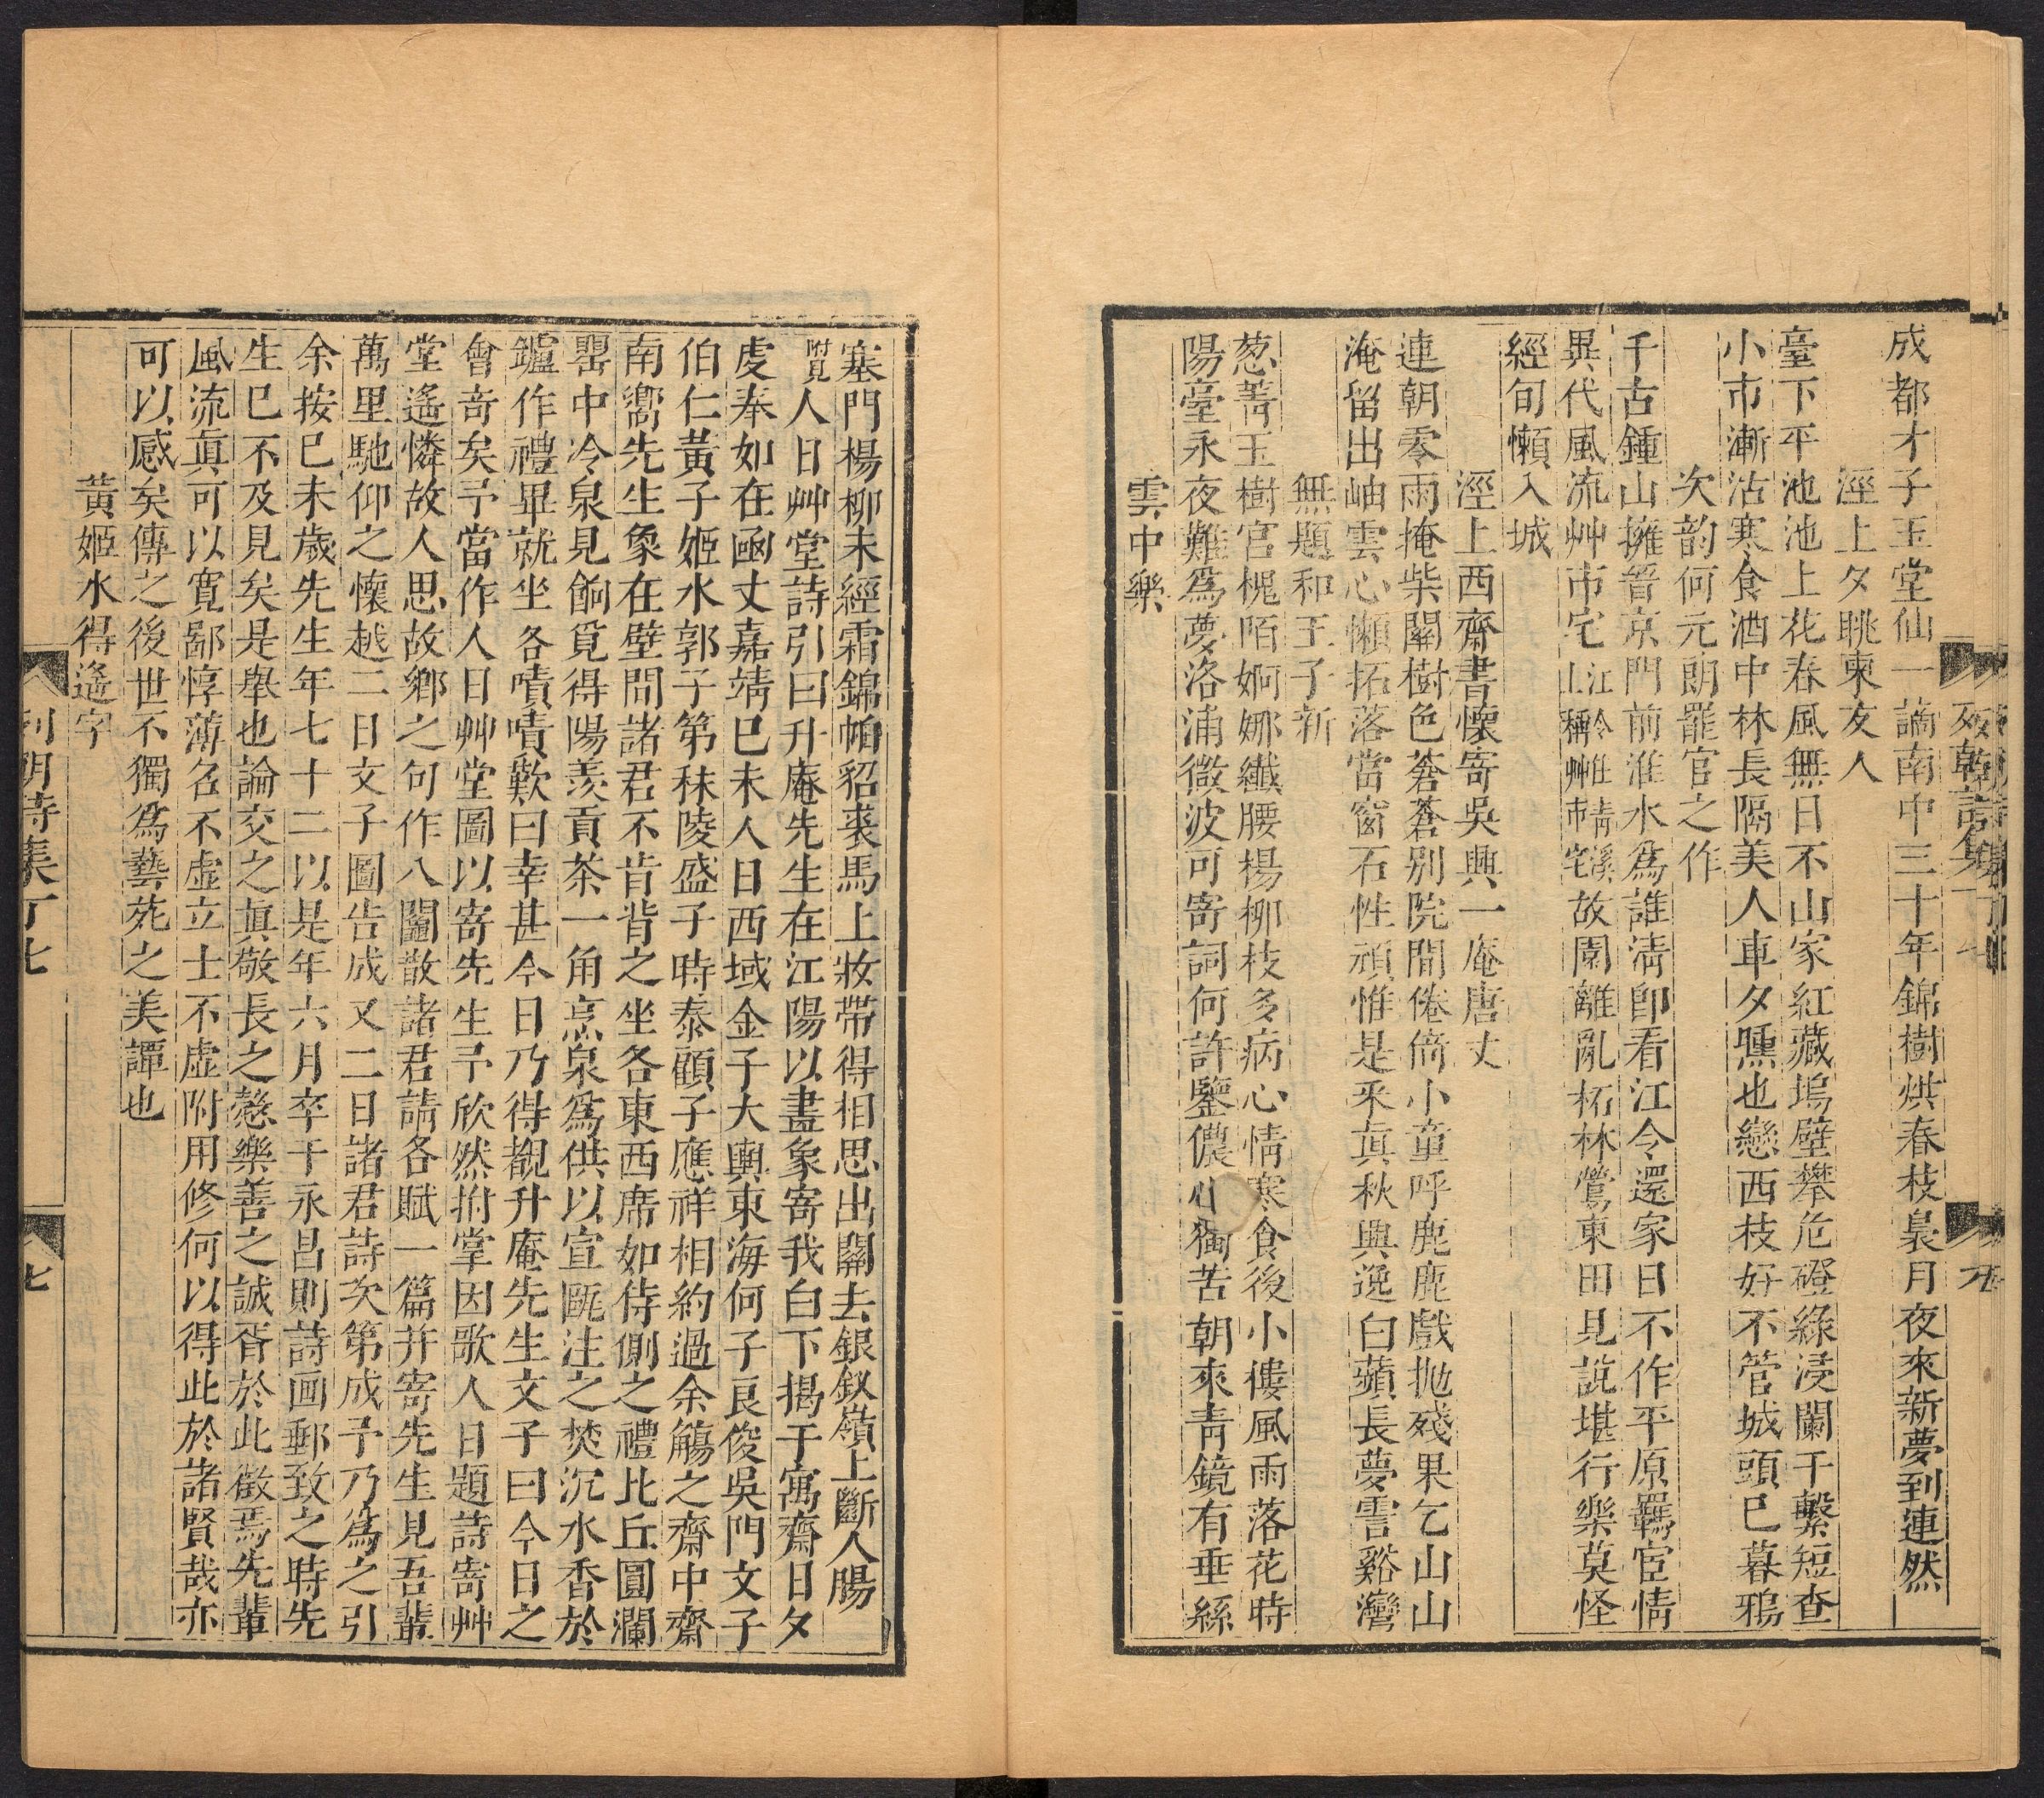 成都才子玉堂仙一謫南中三十年錦樹烘春枝裊月夜來新夢到連然
涇上夕眺柬友人
臺下平池池上花春風無日不山家紅藏塢壁攀危磴綠浸闌干繫短查
小市漸沽寒食酒中林長隔美人車夕曛也戀西枝好不管城頭已暮鴉
次韵何元朗罷官之作
千古鍾山擁晉京門前淮水為誰淸卽看江令還家日不作平原羈宦情
異代風流艸市宅江令住靑溪上稱艸市宅故園離亂柘林鶯東田見說堪行樂莫怪
經旬懶入城
涇上西齋書懷寄吳興一庵唐丈
連朝零雨掩柴關樹色蒼蒼別院閒倦倚小童呼鹿鹿戲拋殘果乞山山
淹留出岫雲心懶拓落當窗石性頑惟是采真秋興逸白蘋長夢霅谿灣
無題和王子新
葱菁玉樹宮槐陌婀娜纖腰楊柳枝多病心情寒食後小樓風雨落花時
陽臺永夜難爲夢洛浦微波可寄詞何許鑒儂心獨苦朝來靑鏡有垂絲
雲中樂
塞門楊柳未經霜錦帕貂裘馬上妝帶得相思出關去銀釵嶺上斷人腸
附見人日艸堂詩引曰升庵先生在江陽以畫象寄我白下揭于寓齋日夕
虔奉如在凾丈嘉靖已未人日西域金子大輿東海何子良俊吳門文子
伯仁黃子姬水郭子第秣陵盛子時泰顧子應祥相約過余觴之齋中齋
南嚮先生象在壁問諸君不肯背之坐各東西席如侍側之禮比丘圓瀾
罌中冷泉見餉覓得陽羨貢茶一角烹泉爲供以宣甌注之焚沉水香於
鑪作禮畢就坐各嘖嘖歎曰幸甚今日乃得覩升庵先生文子曰今日之
會奇矣予當作人日艸堂圖以寄先生予欣然拊掌因歌人日題詩寄艸
堂遙憐故人思故鄉之句作八鬮散諸君請各賦一篇并寄先生見吾輩
萬里馳仰之懷越二日文子圖告成又二日諸君詩次第成予乃爲之引
余按已未歲先生年七十二以是年六月卒于永昌則詩画郵致之時先
生已不及見矣是舉也論交之真敬長之慤樂善之誠胥於此徵焉先輩
風流真可以寬鄙惇薄名不虛立士不虛附用修何以得此於諸賢哉亦
可以感矣傳之後世不獨爲藝苑之美譚也
黃姬水得遙字
列朝詩集丁七
七